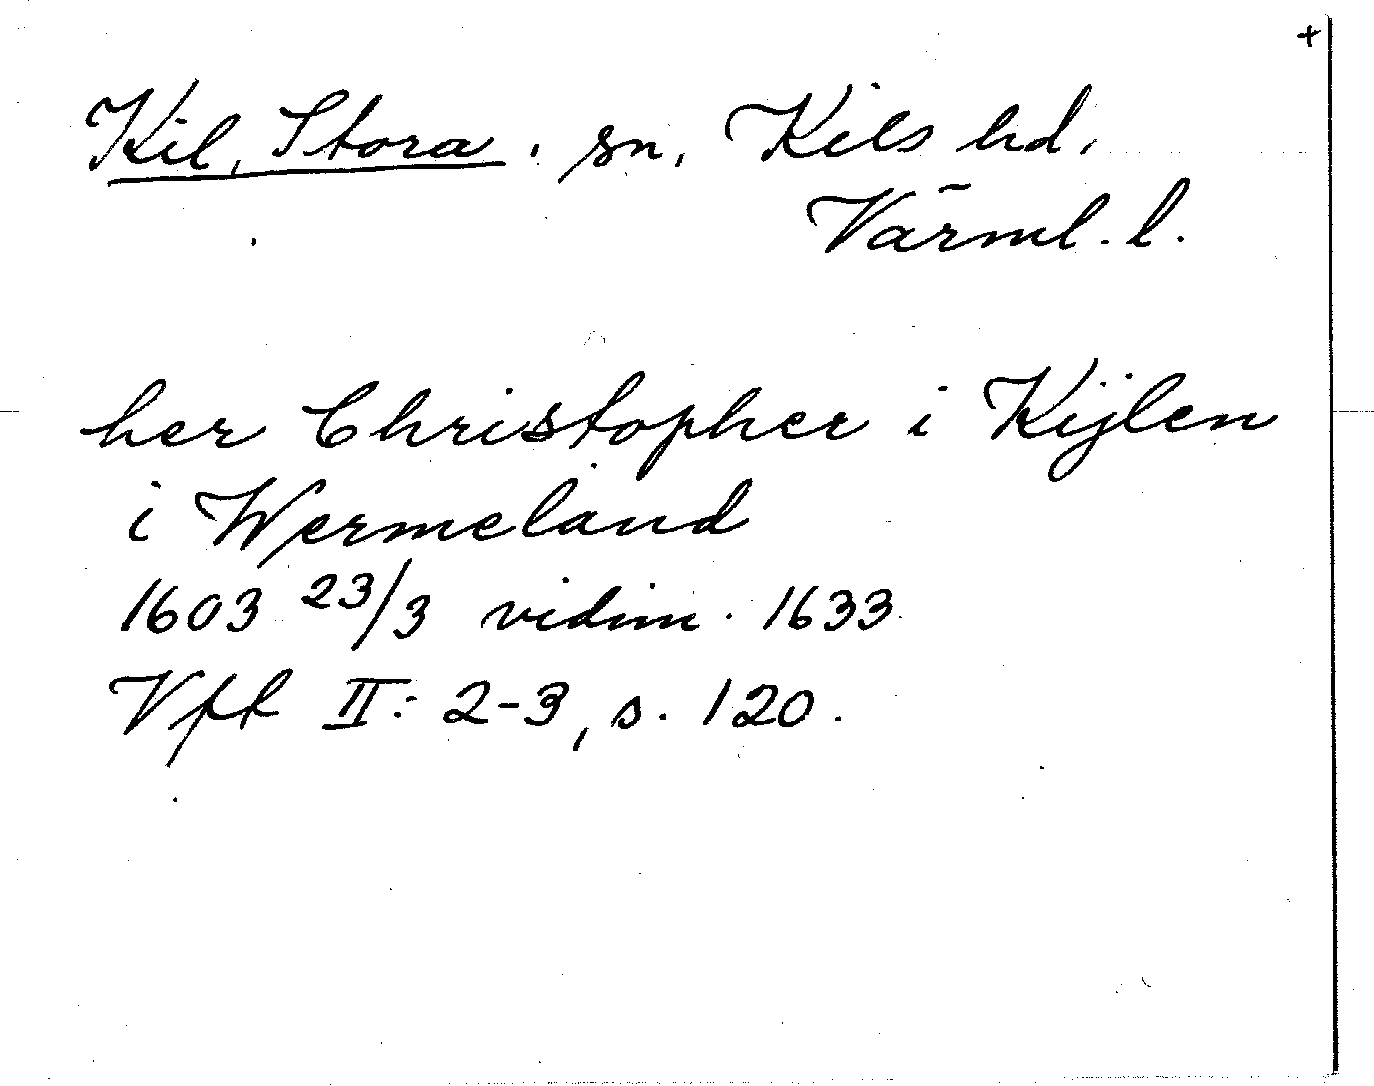 +
Kil, Stora. sn, Kils hd,
Värml. l.
her Christopher i Kijlen
i Wermeland
1603 23/3 vidim. 1633
Vfr II: 2-3, s. 120.